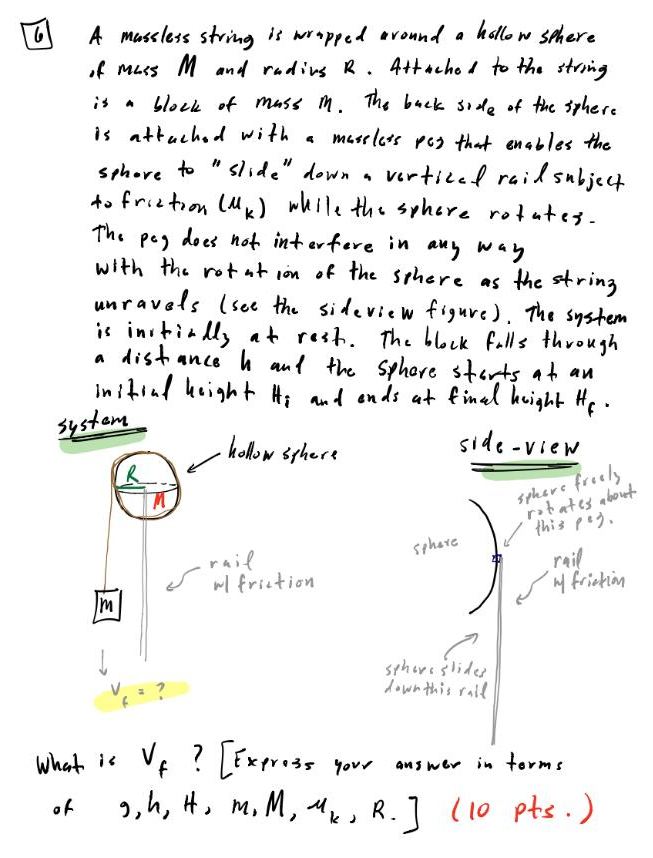 6 A massless string is wrapped around a hollow sphere
of mass M and radius R. Attached to the string
is a block of mass m. The back side of the sphere
is attached with a massless peg that enables the
sphere to "slide" down a vertical rail subject
to friction (μk) while the sphere rotates.
The peg does not interfere in any way
with the rotation of the sphere as the string
unravels (see the sideview figure). The system
is initially at rest. The block falls through
a distance h and the sphere starts at an
initial height Hi and ends at final height Hf.
system
hollow sphere
R
M
rail
w/ friction
m
Vf = ?
side-view
sphere freely
rotates about
this peg.
sphere
rail
w/ friction
sphere slides
down this rail
What is Vf ? [Express your answer in terms
of g, h, H, m, M, μk, R.] (10 pts.)